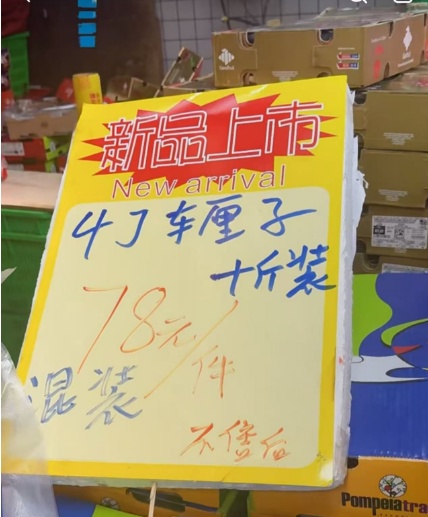 新品上市
New arrival
4J车厘子
十斤装
78元/件
混装
不售后
Pompeiatra